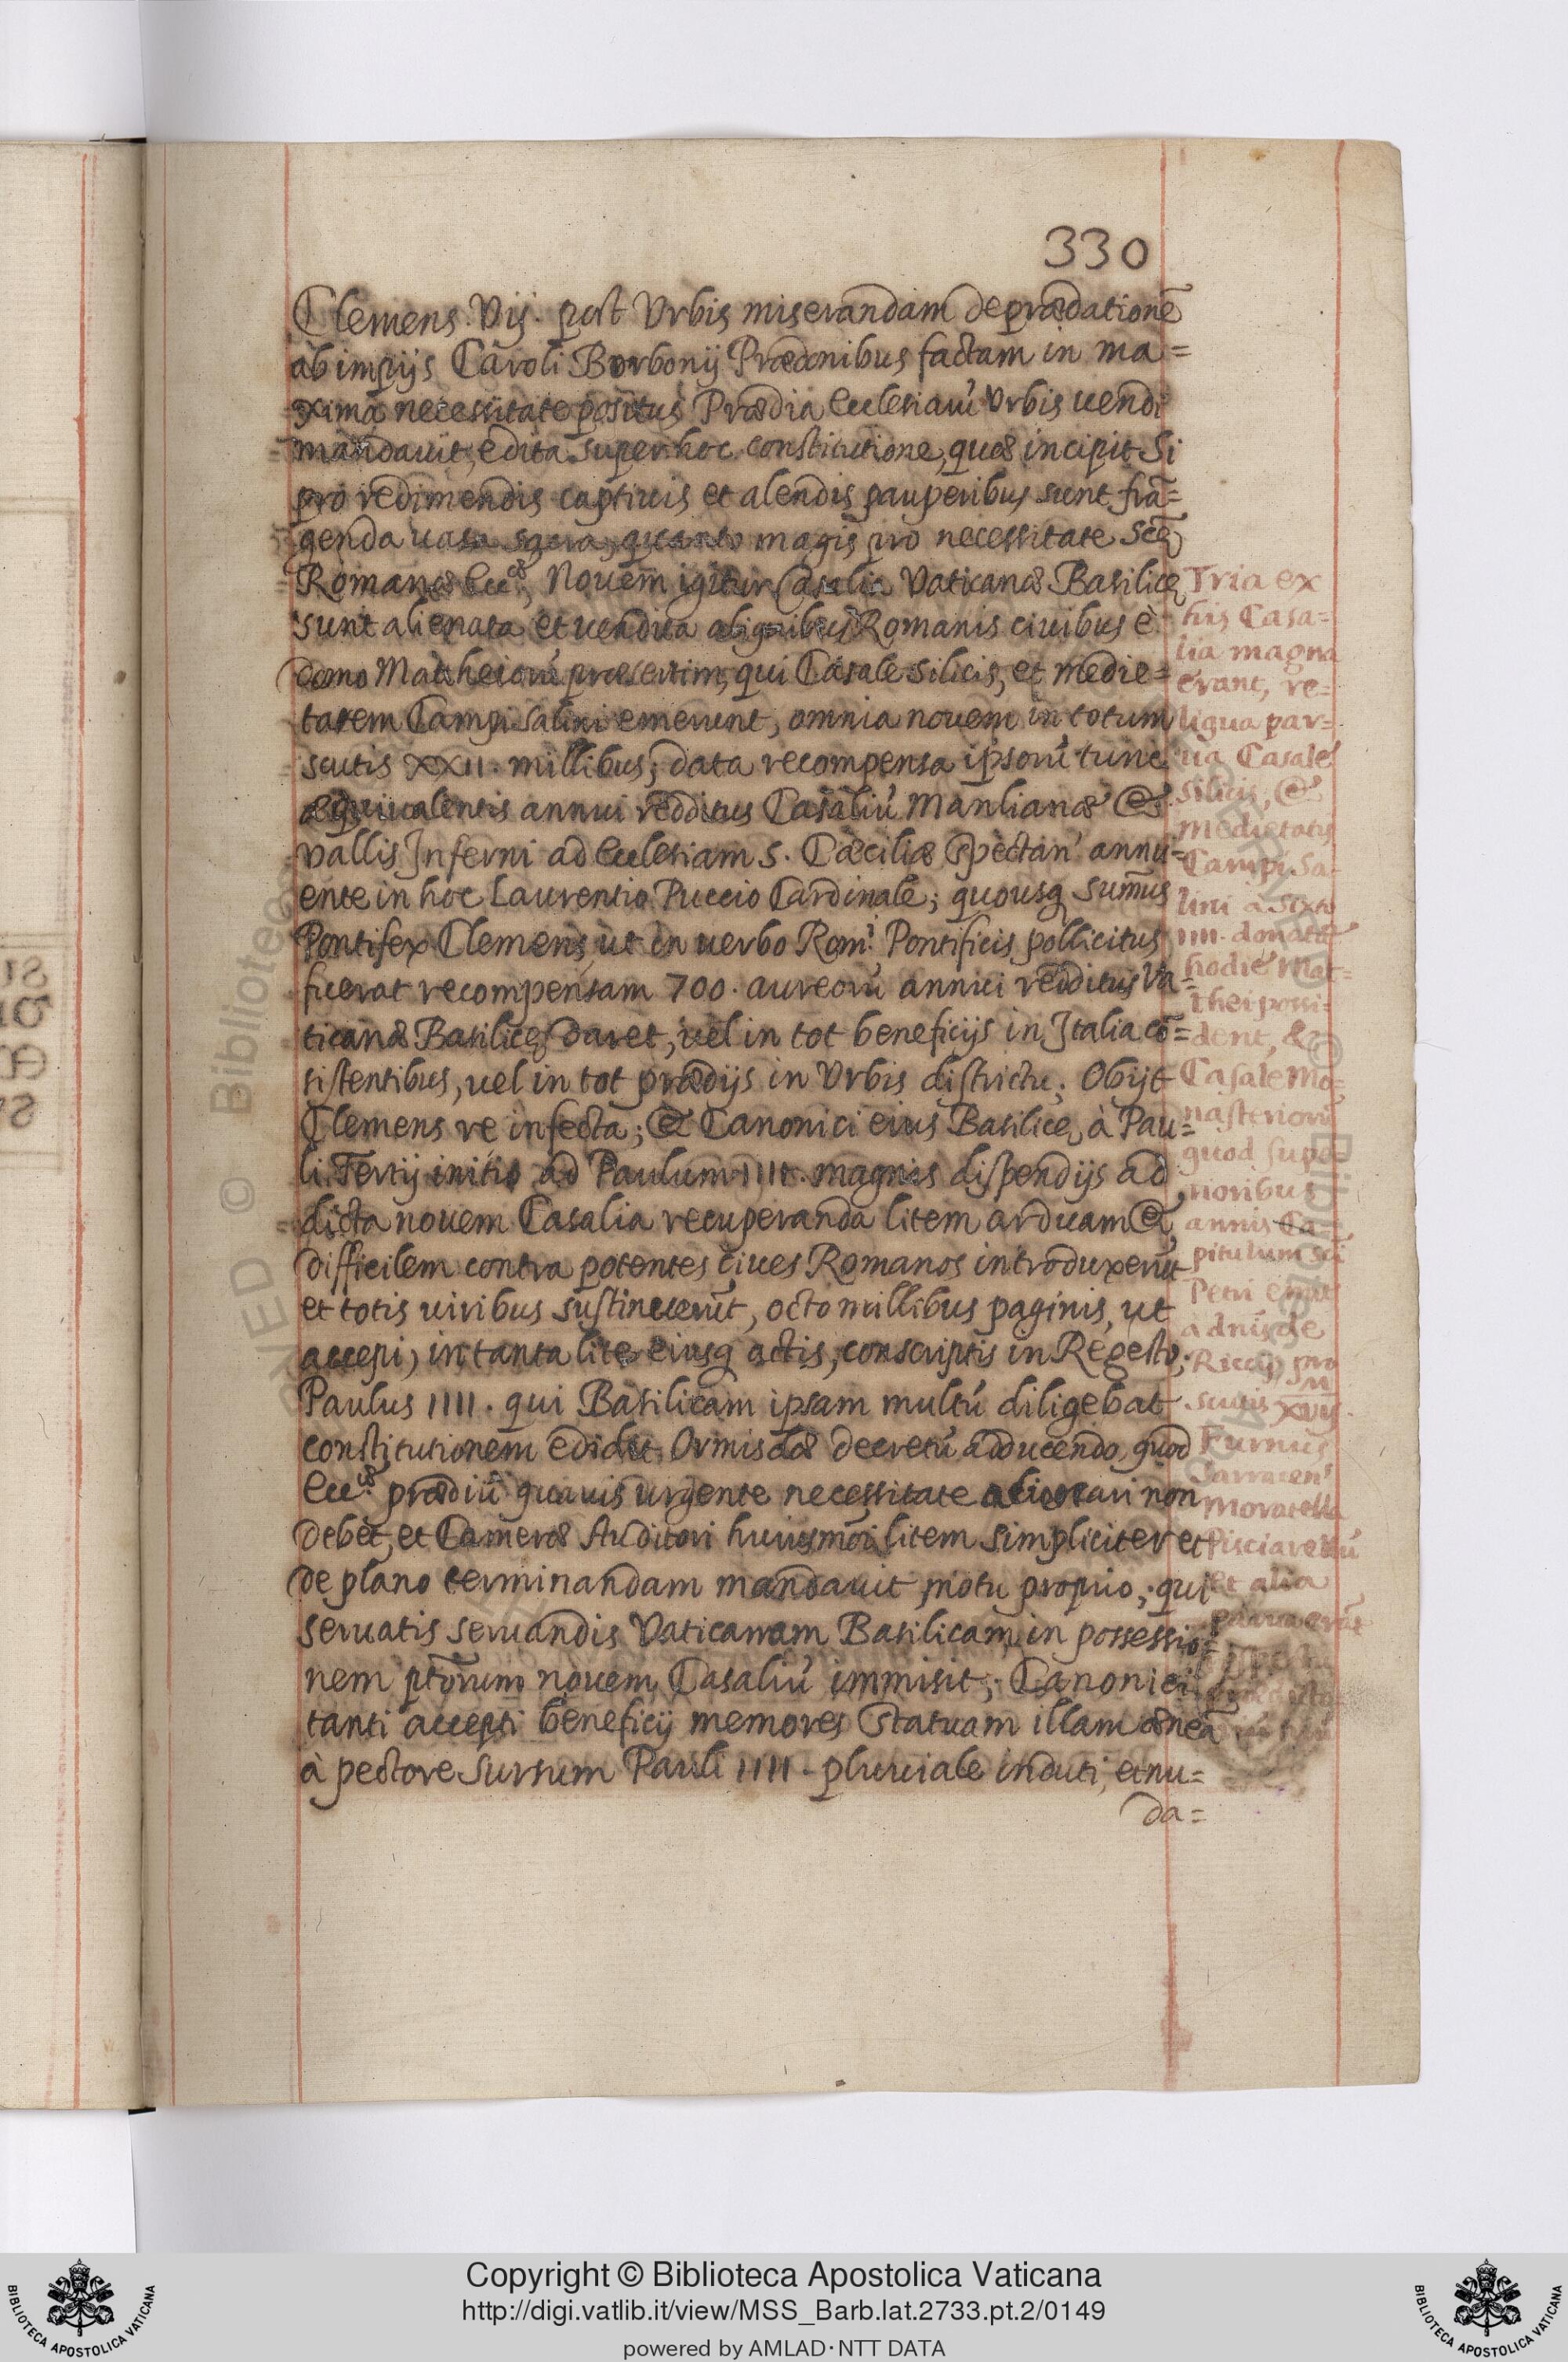 330
Clemens. Vij. post Vrbis miserandam deprædationē
ab impijs Caroli Borbonij Prædonibus factam in ma=
xima necessitate positus Prædia Ecclesiarū Vrbis uendi
mandauit, edita super hoc constitutione, quæ incipit Si
pro redimendis captiuis et alendis pauperibus sunt frā=
genda uasa sacra, quanto magis pro necessitate Scę
Romanæ Eccæ, Nouem igitur Casalia Vaticanæ Basilicę
sunt alienata et uendita aliquibus Romanis ciuibus è
domo Mattheiorū præsertim, qui Casale Silicis, et medie=
tatem Campi Salini emerunt, omnia nouem in totum
scutis XXII. millibus; data recompensa ipsorū tunc
æquiualentis annui redditus Casaliū Manlianæ &
Vallis Inferni ad Ecclesiam S. Cæciliæ spectan' annu=
ente in hoc Laurentio Puccio Cardinale; quousq sum̄us
Pontifex Clemens, ut in uerbo Romi Pontificis pollicitus
fuerat recompensam 700. aureorū annui redditus Va=
ticanæ Basilicę daret, uel in tot beneficijs in Italia cō=
sistentibus, uel in tot prædijs in Vrbis districtu. Obijt
Clemens re infecta; & Canonici eius Basilicę à Pau=
li Tertij initio ad Paulum IIII. magnis dispendijs ad
dicta nouem Casalia recuperanda litem arduam &
difficilem contra potentes ciues Romanos introduxerūt
et totis uiribus sustinuerūt, octo millibus paginis, ut
accepi, in tanta lite eiusq actis, conscriptis in Regesto;
Paulus IIII. qui Basilicam ipsam multū diligebat
constitutionem edidit, Ormisdæ decretū adducendo, quod
Eccæ prædiū quauis urgente necessitate alienari non
debet, et Cameræ Auditori huiusmōi litem simpliciter et
de plano terminandam mandauit motu proprio, qui
seruatis seruandis Vaticanam Basilicam in possessio=
nem ptōrum nouem Casaliū immisit; Canonici
tanti accepti beneficij memores Statuam illam æneā
à pectore sursum Pauli IIII. pluuiale induti, et nu=
da=
Tria ex
his Casa=
lia magna
erant, re=
liqua par=
ua Casale
Silicis, &
Medietatis
Campi Sa=
lini a Sixto
IIII. donatæ
hodie Mat=
thei possi=
dent, &
Casale Mo=
nasteriorū
quod supe=
rioribus
annis Ca=
pitulum Sci
Petri emit
a dn̄is de
Riccijs pro
scutis XVIJ M
Furnus
Sarracen'
Moratella
Pisciarellū
et alia
parua erāt